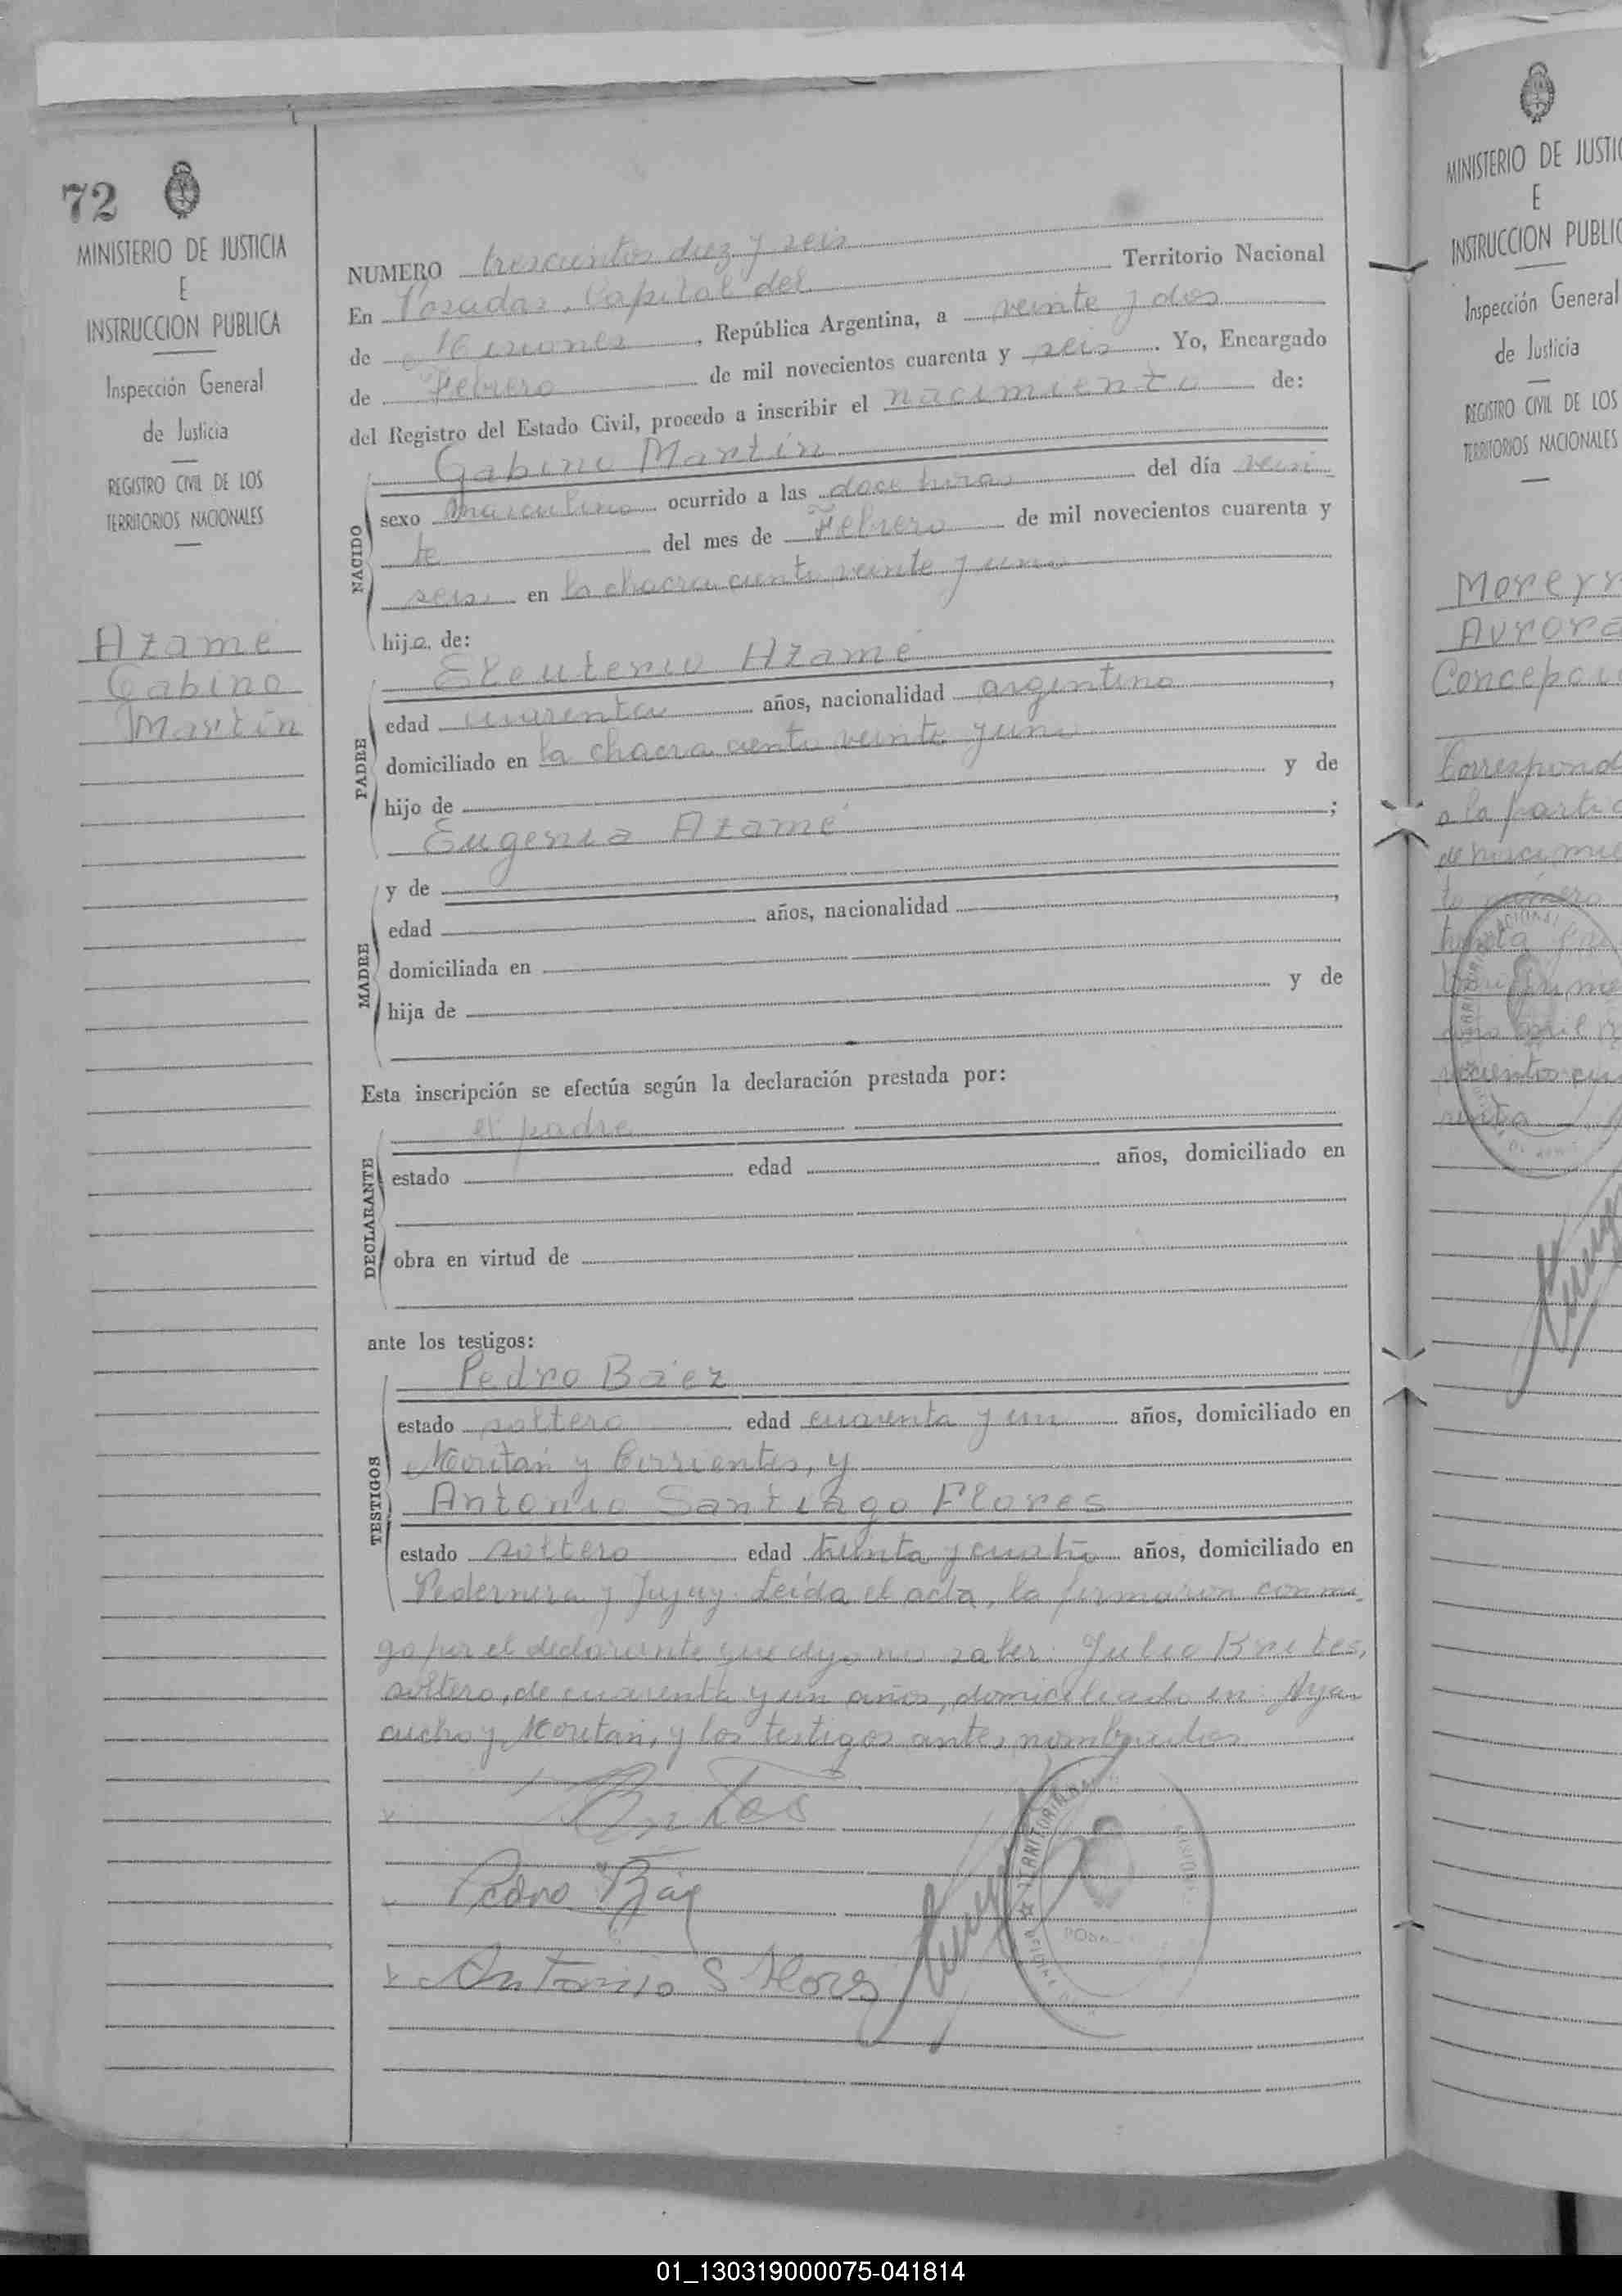 72
MINISTERIO DE JUSTICIA
E
INSTRUCCION PUBLICA
Inspección General
de Justicia
REGISTRO CIVIL DE LOS
TERRITORIOS NACIONALES
Azame
Gabino
Martín
NUMERO trescientos diez y seis
En Posadas, Capital del Territorio Nacional
de Misiones, República Argentina, a veinte y dos
de Febrero de mil novecientos cuarenta y seis. Yo, Encargado
del Registro del Estado Civil, procedo a inscribir el nacimiento de:
NACIDO
Gabino Martín
sexo masculino ocurrido a las doce horas del día vein
te del mes de Febrero de mil novecientos cuarenta y
seis en la chacra ciento veinte y uno
hijo de:
PADRE
Eleuterio Azame
edad cuarenta años, nacionalidad argentino,
domiciliado en la chacra ciento veinte y uno
hijo de y de
Eugenia Azame ;
MADRE
y de
edad años, nacionalidad ,
domiciliada en
hija de y de
Esta inscripción se efectúa según la declaración prestada por:
DECLARANTE
el padre
estado edad años, domiciliado en
obra en virtud de
ante los testigos:
TESTIGOS
Pedro Báez
estado soltero edad cuarenta y un años, domiciliado en
Moritán y Corrientes, y
Antonio Santiago Flores
estado soltero edad treinta y cuatro años, domiciliado en
Pedernera y Jujuy. Leída el acta, la firmaron conmi
go por el declarante que dijo no saber: Julio Brites,
soltero, de cuarenta y un años, domiciliado en Aya
cucho y Moritán, y los testigos antes nombrados
Brites
Pedro Báez
Antonio S Flores
MINISTERIO DE JUSTIC
E
INSTRUCCION PUBLIC
Inspección General
de Justicia
REGISTRO CIVIL DE LOS
TERRITORIOS NACIONALES
Moreyr
Aurora
Concepci
Correspond
a la partid
de nacimie
to número
01_130319000075-041814